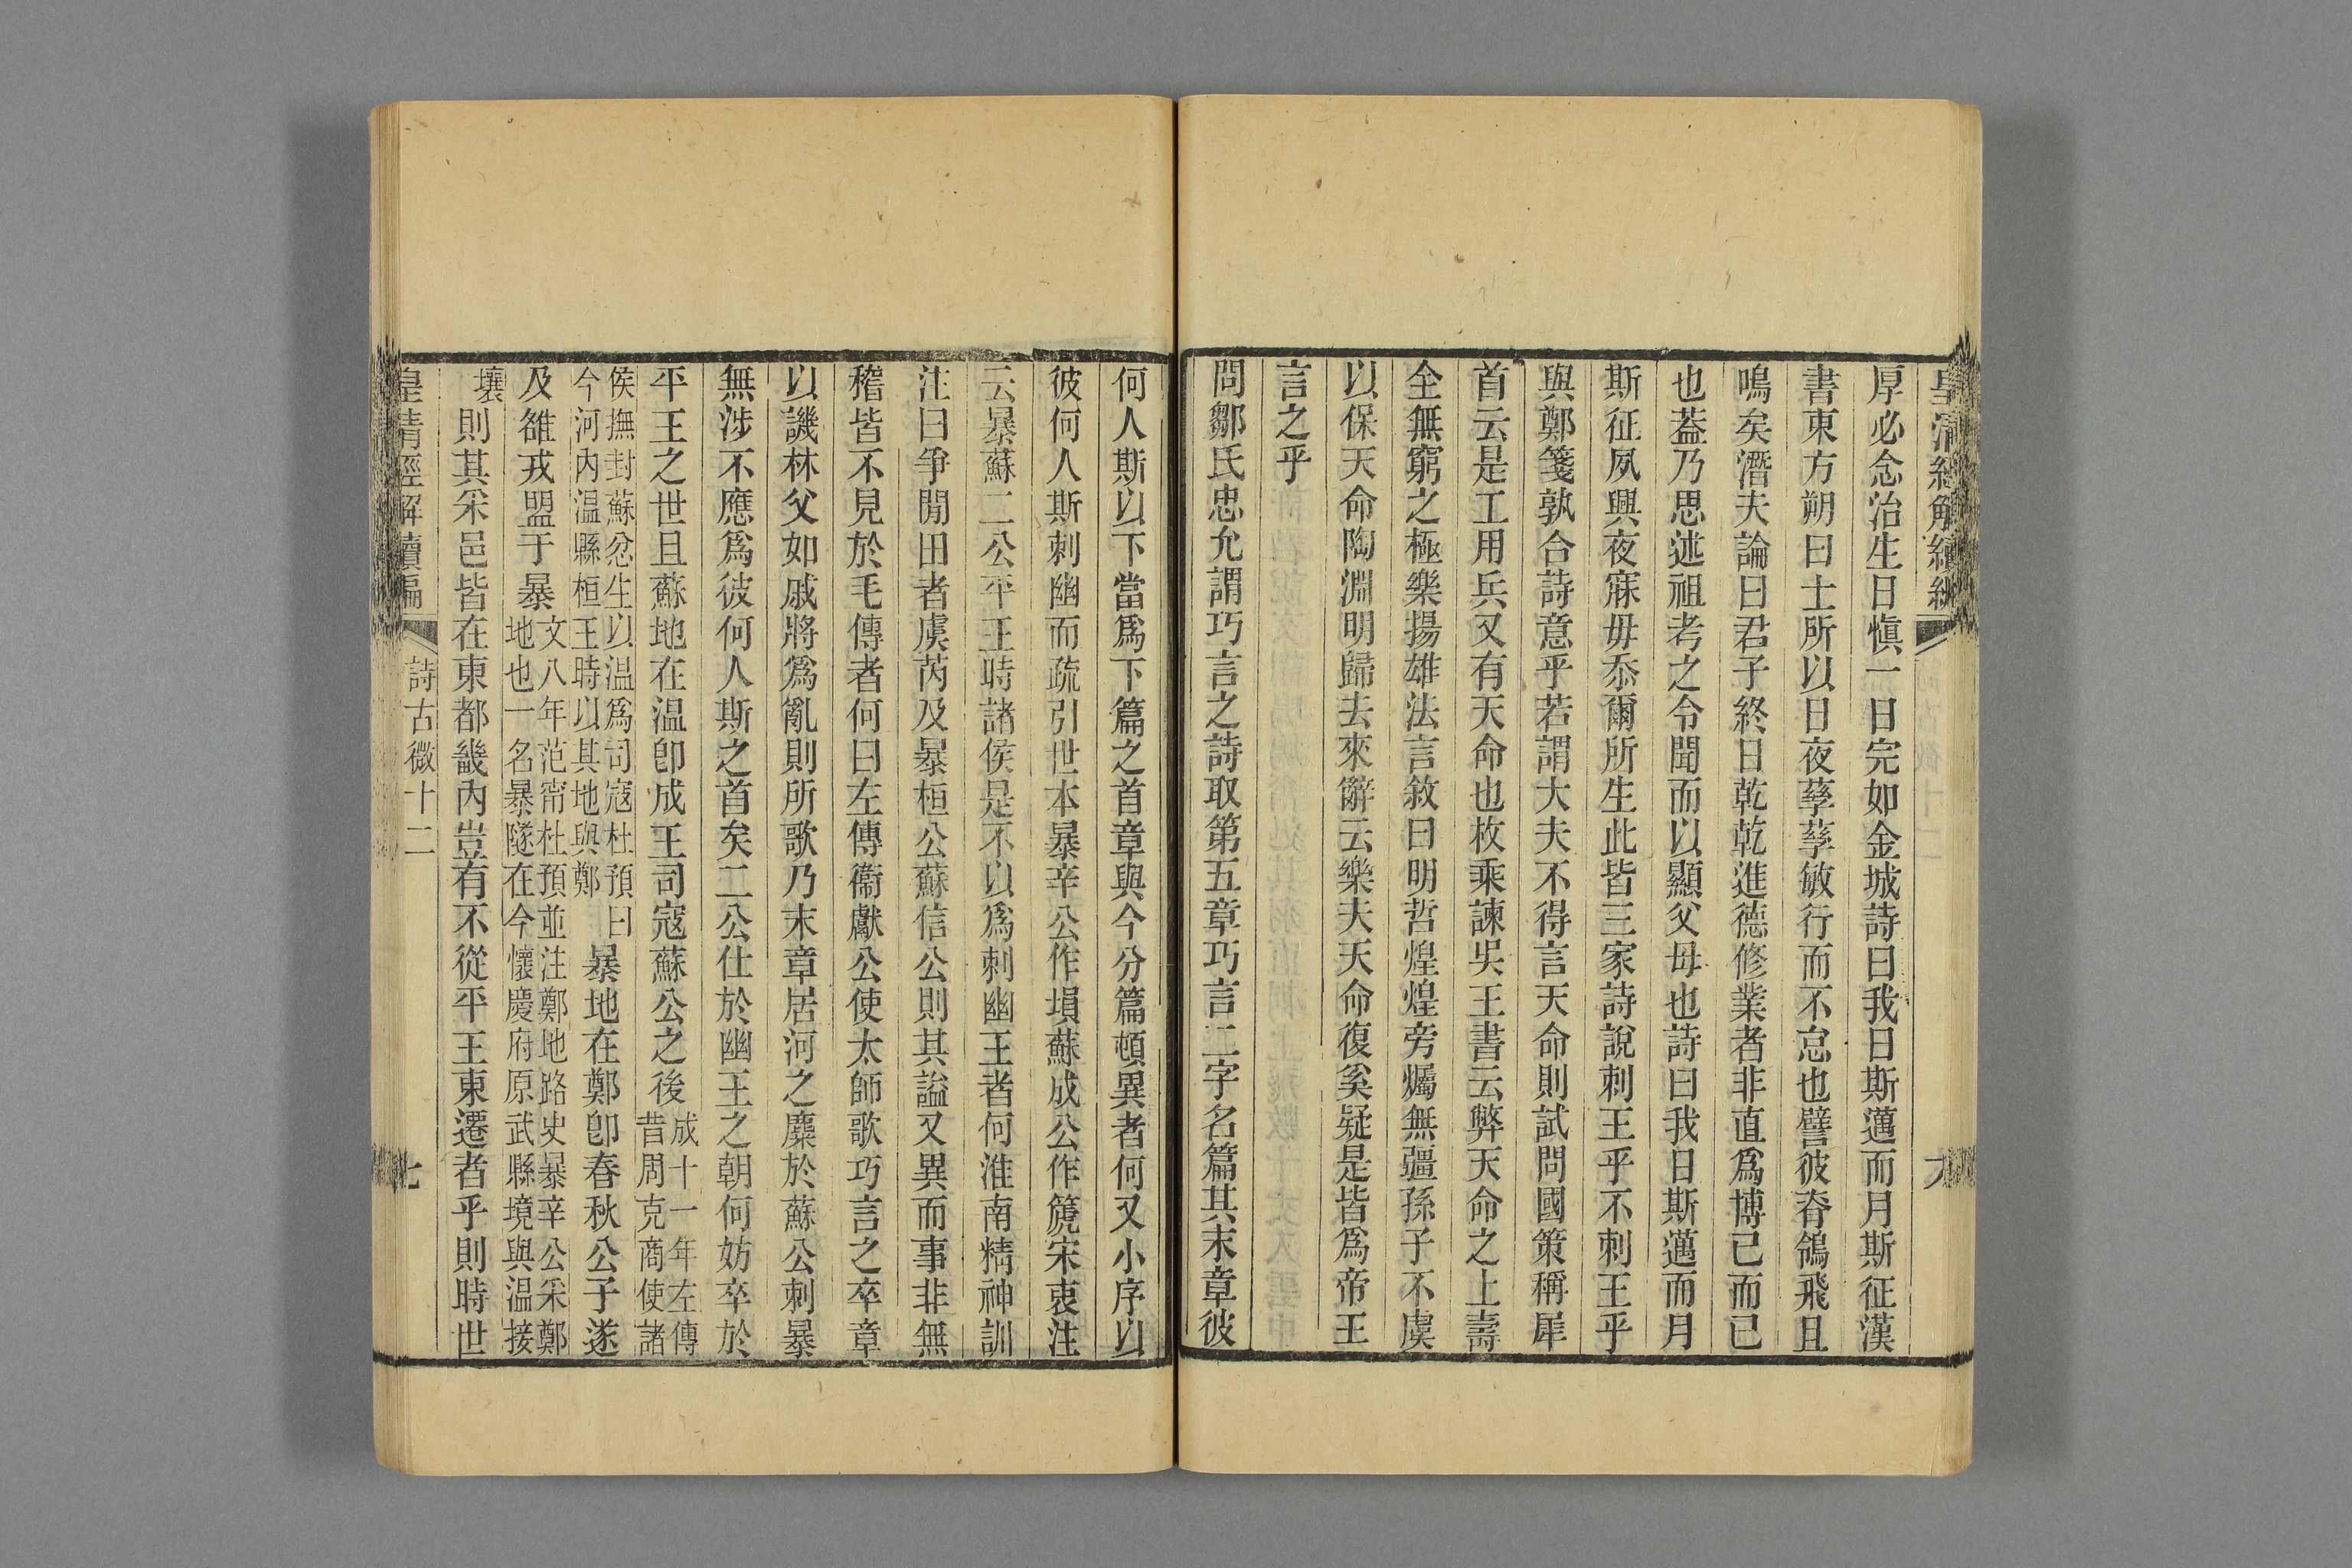 皇清經解續編
厚必念治生日慎一日完如金城詩曰我日斯邁而月斯征漢
書東方朔曰士所以日夜孳孳敏行而不怠也譬彼脊鴒飛且
鳴矣潛夫論曰君子終日乾乾進德修業者非直爲博己而已
也葢乃思述祖考之令聞而以顯父母也詩曰我日斯邁而月
斯征夙興夜寐毋忝爾所生此皆三家詩說刺王乎不刺王乎
與鄭箋孰合詩意乎若謂大夫不得言天命則試問國策稱犀
首云是工用兵又有天命也枚乘諫吳王書云弊天命之上壽
全無窮之極樂揚雄法言敘曰明哲煌煌旁燭無疆孫子不虞
以保天命陶淵明歸去來辭云樂夫天命復奚疑是皆爲帝王
言之乎
問鄒氏忠允謂巧言之詩取第五章巧言二字名篇其末章彼
何人斯以下當爲下篇之首章與今分篇頓異者何又小序以
彼何人斯刺幽而疏引世本暴辛公作塤蘇成公作箎宋衷注
云暴蘇二公平王時諸侯是不以爲刺幽王者何淮南精神訓
注曰爭閒田者虞芮及暴桓公蘇信公則其謚又異而事非無
稽皆不見於毛傳者何曰左傳衞獻公使太師歌巧言之卒章
以譏林父如戚將爲亂則所歌乃末章居河之麋於蘇公刺暴
無涉不應爲彼何人斯之首矣二公仕於幽王之朝何妨卒於
平王之世且蘇地在温卽成王司寇蘇公之後成十一年左傳
昔周克商使諸
侯撫封蘇忿生以温爲司寇杜預曰
今河內温縣桓王時以其地與鄭暴地在鄭卽春秋公子遂
及雒戎盟于暴文八年范甯杜預並注鄭地路史暴辛公采鄭
地也一名暴隧在今懷慶府原武縣境與温接
壤則其采邑皆在東都畿內豈有不從平王東遷者乎則時世
皇清經解續編
詩古微十二
七